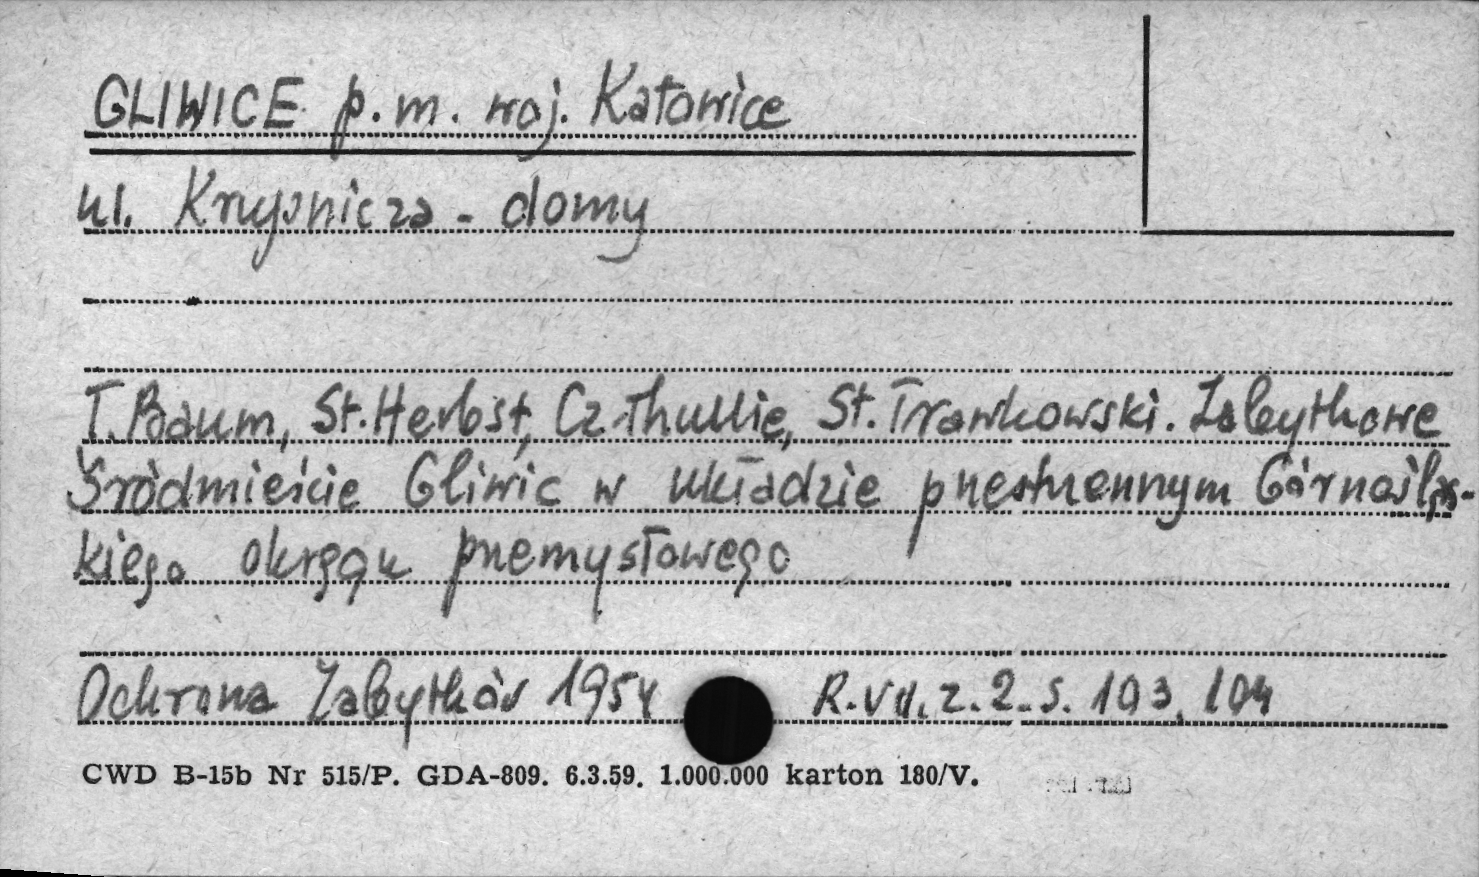 GLIWICE p.m. woj. Katowice
ul. Krupnicza - domy
T. Baum, St. Herbst, Cz. Thullie, St. Trawkowski. Zabytkowe
Śródmieście Gliwic w układzie przestrzennym Górnośląs-
kiego okręgu przemysłowego
Ochrona Zabytków 1954 R. VII. z. 2. s. 103, 104
CWD B-15b Nr 515/P. GDA-809. 6.3.59. 1.000.000 karton 180/V.